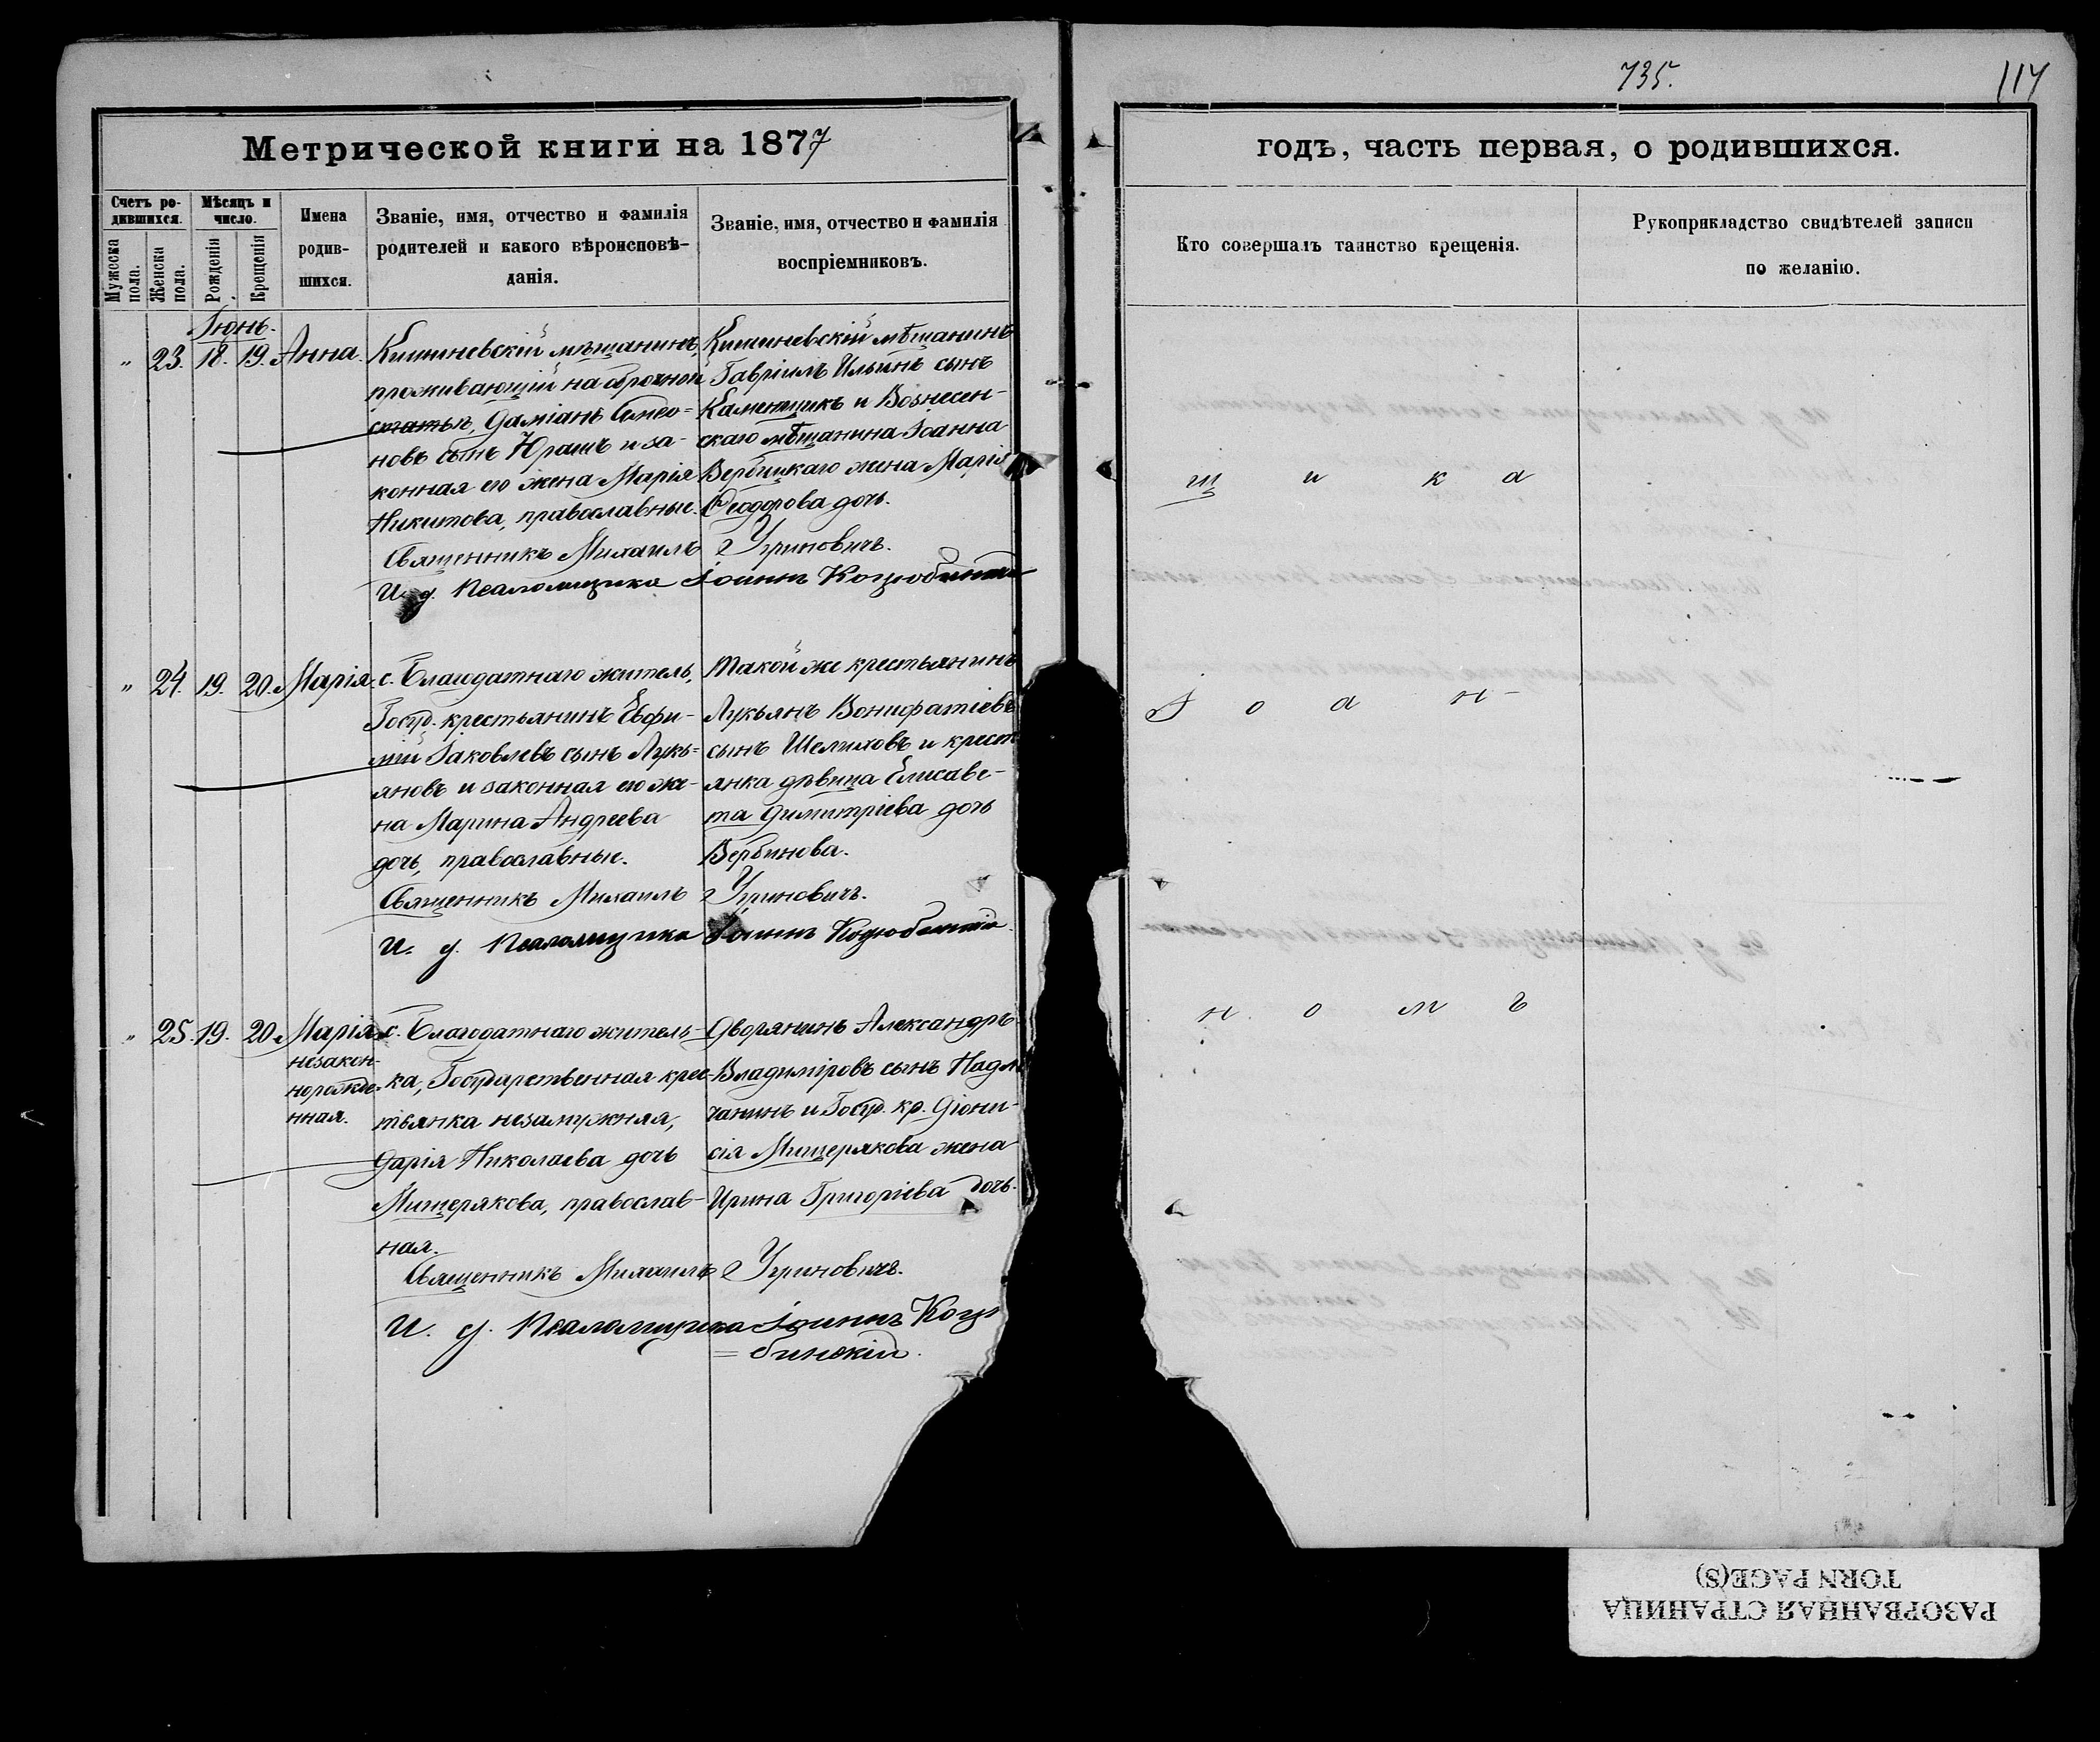 735.
117
Метрической книги на 1877
годъ, часть первая, о родившихся.
Счетъ ро-
дившихся.
Мужеска
пола.
Женска
пола.
Мѣсяцъ и
число.
Рожденія
Крещенія
Имена
родив-
шихся.
Званіе, имя, отчество и фамилія
родителей и какого вѣроисповѣ-
данія.
Званіе, имя, отчество и фамилія
воспріемниковъ.
Кто совершалъ таинство крещенія.
Рукоприкладство свидѣтелей записи
по желанію.
Іюнь.
„ 23. 18. 19. Анна.
Кишиневскій мѣщанинъ,
проживающій на оброчной
статьѣ, Даміанъ Симео=
новъ сынъ Юрашъ и за-
конная его жена Марія
Никитова, православные.
Кишиневскій мѣщанинъ
Гавріилъ Ильинъ сынъ
Каменщикъ и Вознесен-
скаго мѣщанина Іоанна
Вербицкаго жена Марія
Ѳеодорова дочь.
Священникъ Михаилъ Угриновичъ.
И. д. Псаломщика Іоаннъ Коцюбинскій
щ и к а
„ 24. 19. 20. Марія.
с. Благодатнаго житель,
Госуд. крестьянинъ Евфи-
мій Іаковлевъ сынъ Лукь=
яновъ и законная его же-
на Марина Андреева
дочь, православные.
Такой же крестьянинъ
Лукьянъ Вонифатіевъ
сынъ Шелиховъ и крест
янка дѣвица Елисаве-
та Димитріева дочь
Вербинова.
Священникъ Михаилъ Угриновичъ.
И. д. Псаломщика Іоаннъ Коцюбинскій.
І о а н-
„ 25. 19. 20. Марія
незакон-
норожде-
нная.
с. Благодатнаго житель-
ка, Государственная крес-
тьянка незамужняя,
Дарія Николаева дочь
Мищерякова, православ-
ная.
Дворянинъ Александръ
Владиміровъ сынъ Надл
чанинъ и Госуд. кр. Діони-
сія Мищерякова жена
Ирина Григоріева дочь.
Священникъ Михаилъ Угриновичъ.
И. д. Псаломщика Іоаннъ Коцю
=бинскій.
н о м ъ
РАЗОРВАННАЯ СТРАНИЦА
TORN PAGE(S)